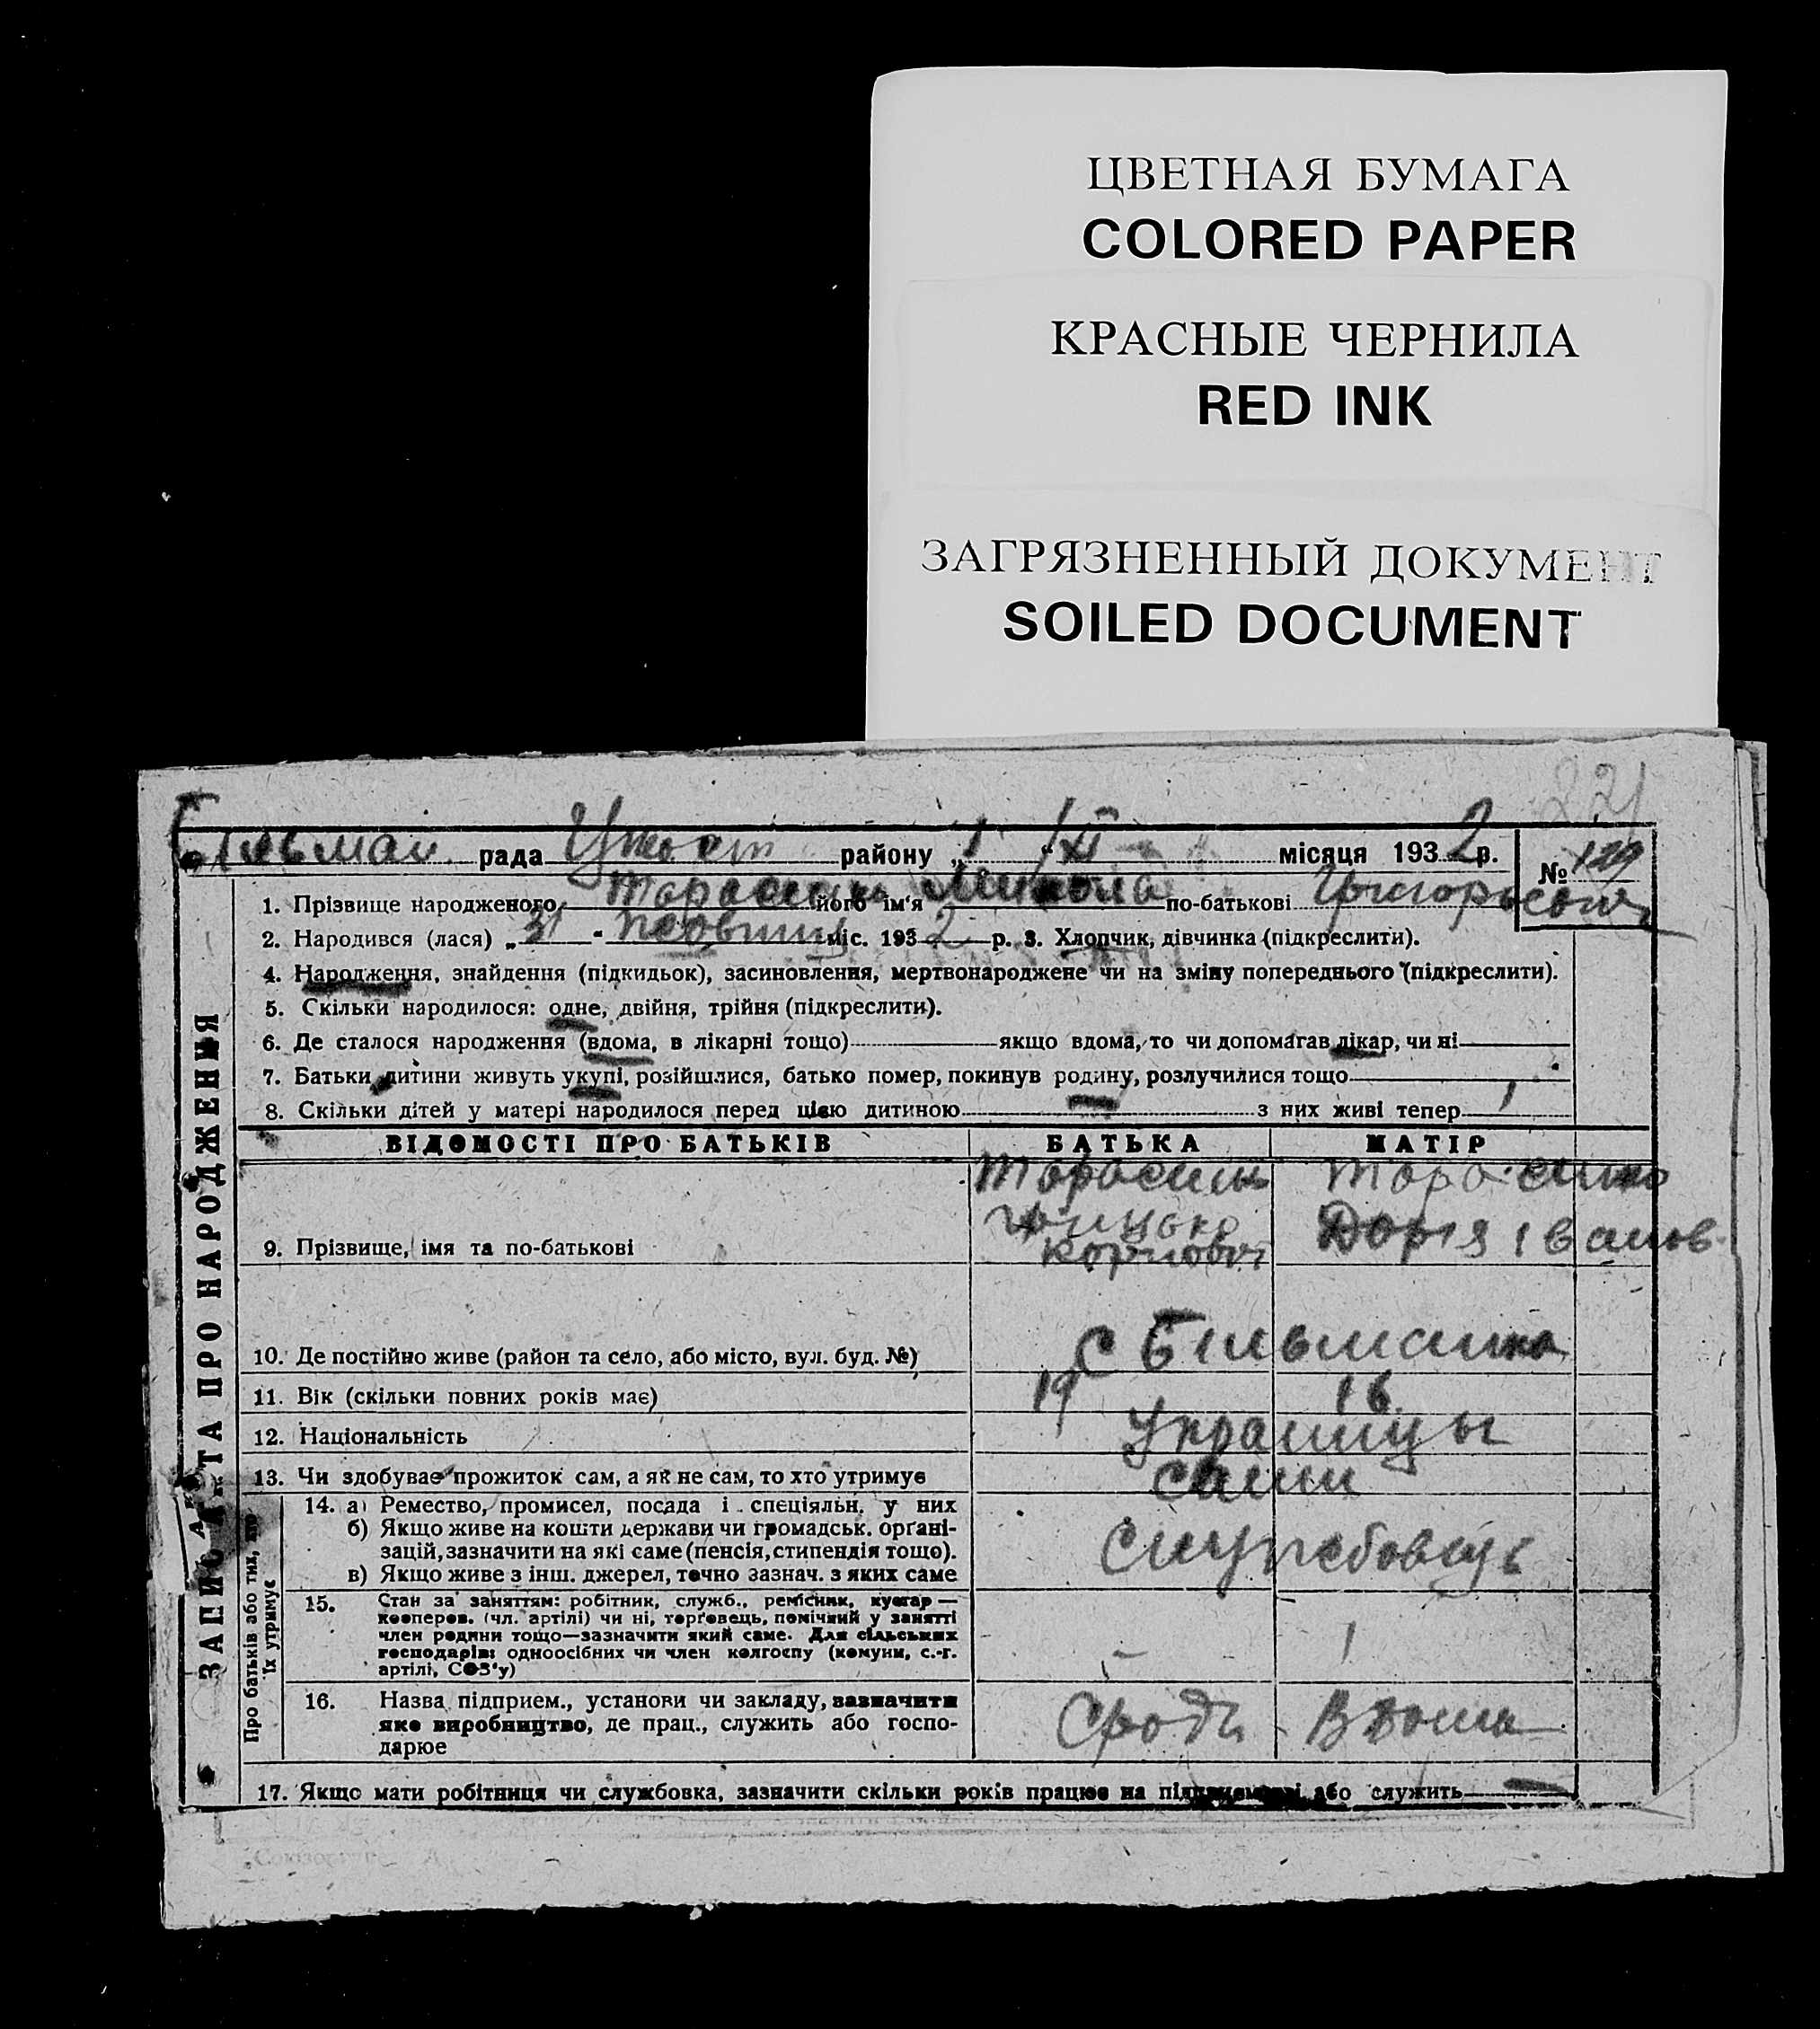 ЦВЕТНАЯ БУМАГА
COLORED PAPER
КРАСНЫЕ ЧЕРНИЛА
RED INK
ЗАГРЯЗНЕННЫЙ ДОКУМЕНТ
SOILED DOCUMENT
221
рада району „1 " місяця 1932 р.
№ 129
ЗАПИС АКТА ПРО НАРОДЖЕННЯ
1. Прізвище народженого його ім'я Микола по-батькові
2. Народився (лася) „31 " міс. 1932 р. 3. Хлопчик, дівчинка (підкреслити).
4. Народження, знайдення (підкидьок), засиновлення, мертвонароджене чи на зміну попереднього (підкреслити).
5. Скільки народилося: одне, двійня, трійня (підкреслити).
6. Де сталося народження (вдома, в лікарні тощо) якщо вдома, то чи допомагав лікар, чи ні
7. Батьки дитини живуть укупі, розійшлися, батько помер, покинув родину, розлучилися тощо
8. Скільки дітей у матері народилося перед цією дитиною — з них живі тепер 1
ВІДОМОСТІ ПРО БАТЬКІВ БАТЬКА МАТІР
9. Прізвище, імя та по-батькові
Грицько Дарія Іванов
10. Де постійно живе (район та село, або місто, вул. буд. №) с
11. Вік (скільки повних років має) 19 16
12. Національність Украинцы
13. Чи здобуває прожиток сам, а як не сам, то хто утримує сами
Про батьків або тих, хто їх утримує
14. а) Ремество, промисел, посада і спеціяльн. у них
б) Якщо живе на кошти держави чи громадськ. органі-
зацій, зазначити на які саме (пенсія, стипендія тощо).
в) Якщо живе з інш. джерел, точно зазнач. з яких саме
15. Стан за заняттям: робітник, служб., ремісник, кустар —
кооперов. (чл. артілі) чи ні, торговець, помічний у занятті
член родини тощо—зазначити який саме. Для сільських
господарів: одноосібних чи член колгоспу (комуни, с.-г.
артілі, СОЗ'у)
16. Назва підприєм., установи чи закладу, зазначити
яке виробництво, де прац., служить або госпо-
дарює
Вдома
17. Якщо мати робітниця чи службовка, зазначити скільки років працює на підприємстві або служить —